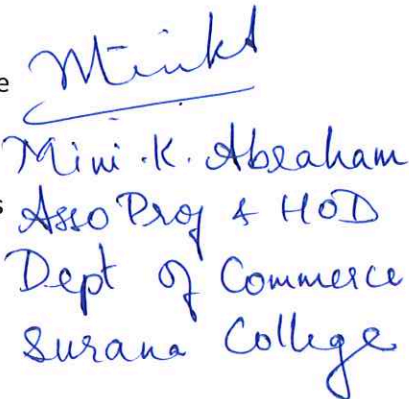 e
MiniKA
Mini.K. Abraham
s
Asso Prof & HOD
Dept of Commerce
Surana College